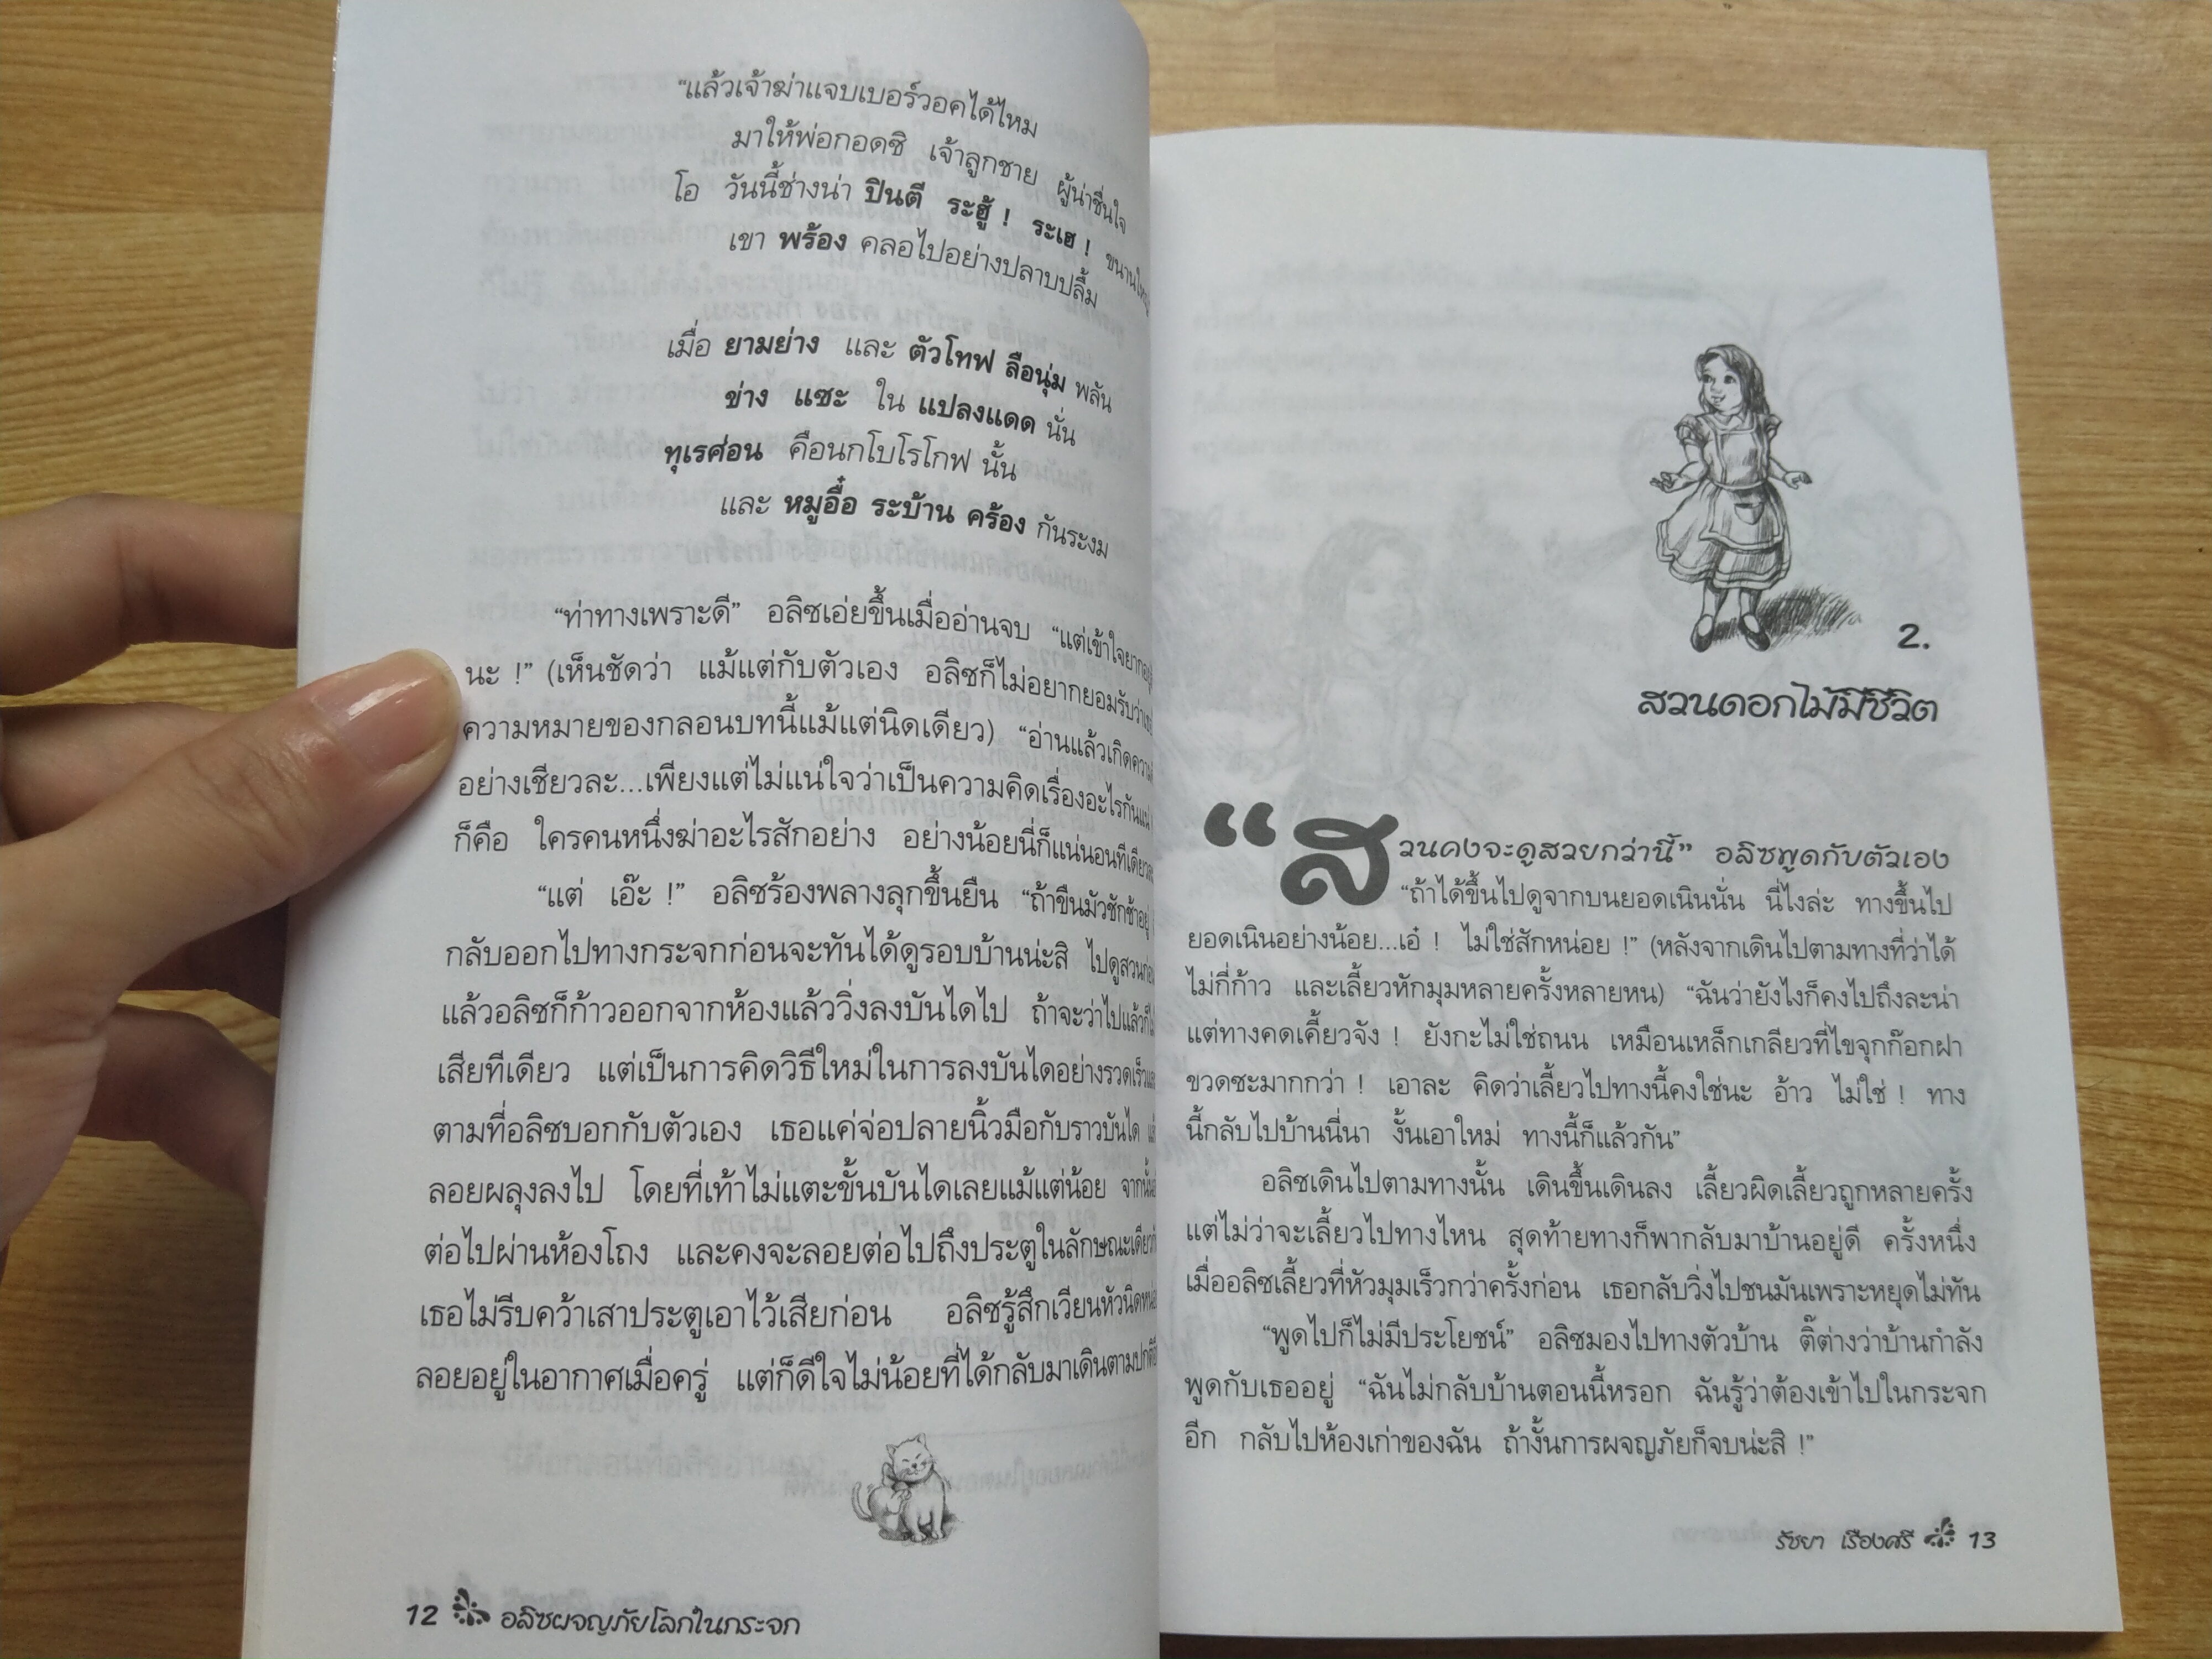 “แล้วเจ้าฆ่าแจบเบอร์วอคได้ไหม
มาให้พ่อกอดซิ เจ้าลูกชาย ผู้น่าชื่นใจ
โอ วันนี้ช่างน่า ปินตี ระฮู้ ! ระเฮ !
เขา พร้อง คลอไปอย่างปลาบปลื้ม
เมื่อ ยามย่าง และ ตัวโทฟ ลือนุ่ม พลัน
ข่าง แซะ ใน แปลงแดด นั่น
ทุเรศ่อน คือนกโบโรโกฟ นั้น
และ หมูอื๋อ ระบ้าน คร้อง กันระงม
“ท่าทางเพราะดี” อลิซเอ่ยขึ้นเมื่ออ่านจบ “แต่เข้าใจยาก
นะ !” (เห็นชัดว่า แม้แต่กับตัวเอง อลิซก็ไม่อยากยอมรับว่า
ความหมายของกลอนบทนี้แม้แต่นิดเดียว) “อ่านแล้วเกิด
อย่างเชียวละ...เพียงแต่ไม่แน่ใจว่าเป็นความคิดเรื่องอะไรกันแน่
ก็คือ ใครคนหนึ่งฆ่าอะไรสักอย่าง อย่างน้อยนี่ก็แน่นอนทีเดียว
“แต่ เอ๊ะ !” อลิซร้องพลางลุกขึ้นยืน “ถ้าขืนมัวชักช้าอยู่
กลับออกไปทางกระจกก่อนจะทันได้ดูรอบบ้านน่ะสิ ไปดูสวน
แล้วอลิซก็ก้าวออกจากห้องแล้ววิ่งลงบันไดไป ถ้าจะว่าไปแล้ว
เสียทีเดียว แต่เป็นการคิดวิธีใหม่ในการลงบันไดอย่างรวดเร็ว
ตามที่อลิซบอกกับตัวเอง เธอแค่จ่อปลายนิ้วมือกับราวบันได
ลอยผลุงลงไป โดยที่เท้าไม่แตะขั้นบันไดเลยแม้แต่น้อย
ต่อไปผ่านห้องโถง และคงจะลอยต่อไปถึงประตูในลักษณะ
เธอไม่รีบคว้าเสาประตูเอาไว้เสียก่อน อลิซรู้สึกเวียนหัว
ลอยอยู่ในอากาศเมื่อครู่ แต่ก็ดีใจไม่น้อยที่ได้กลับมาเดินตาม
12 อลิซผจญภัยโลกในกระจก
2.
สวนดอกไม้มีชีวิต
“สวนคงจะดูสวยกว่านี้” อลิซพูดกับตัวเอง
“ถ้าได้ขึ้นไปดูจากบนยอดเนินนั่น นี่ไงล่ะ ทางขึ้นไป
ยอดเนินอย่างน้อย...เอ๋ ! ไม่ใช่สักหน่อย !” (หลังจากเดินไปตามทางที่ว่าได้
ไม่กี่ก้าว และเลี้ยวหักมุมหลายครั้งหลายหน) “ฉันว่ายังไงก็คงไปถึงละน่า
แต่ทางคดเคี้ยวจัง ! ยังกะไม่ใช่ถนน เหมือนเหล็กเกลียวที่ไขจุกก๊อกฝา
ขวดซะมากกว่า ! เอาละ คิดว่าเลี้ยวไปทางนี้คงใช่นะ อ้าว ไม่ใช่ ! ทาง
นี้กลับไปบ้านนี่นา งั้นเอาใหม่ ทางนี้ก็แล้วกัน”
อลิซเดินไปตามทางนั้น เดินขึ้นเดินลง เลี้ยวผิดเลี้ยวถูกหลายครั้ง
แต่ไม่ว่าจะเลี้ยวไปทางไหน สุดท้ายทางก็พากลับมาบ้านอยู่ดี ครั้งหนึ่ง
เมื่ออลิซเลี้ยวที่หัวมุมเร็วกว่าครั้งก่อน เธอกลับวิ่งไปชนมันเพราะหยุดไม่ทัน
“พูดไปก็ไม่มีประโยชน์” อลิซมองไปทางตัวบ้าน ติ๊ต่างว่าบ้านกำลัง
พูดกับเธออยู่ “ฉันไม่กลับบ้านตอนนี้หรอก ฉันรู้ว่าต้องเข้าไปในกระจก
อีก กลับไปห้องเก่าของฉัน ถ้างั้นการผจญภัยก็จบน่ะสิ !”
รัชยา เรืองศรี 13